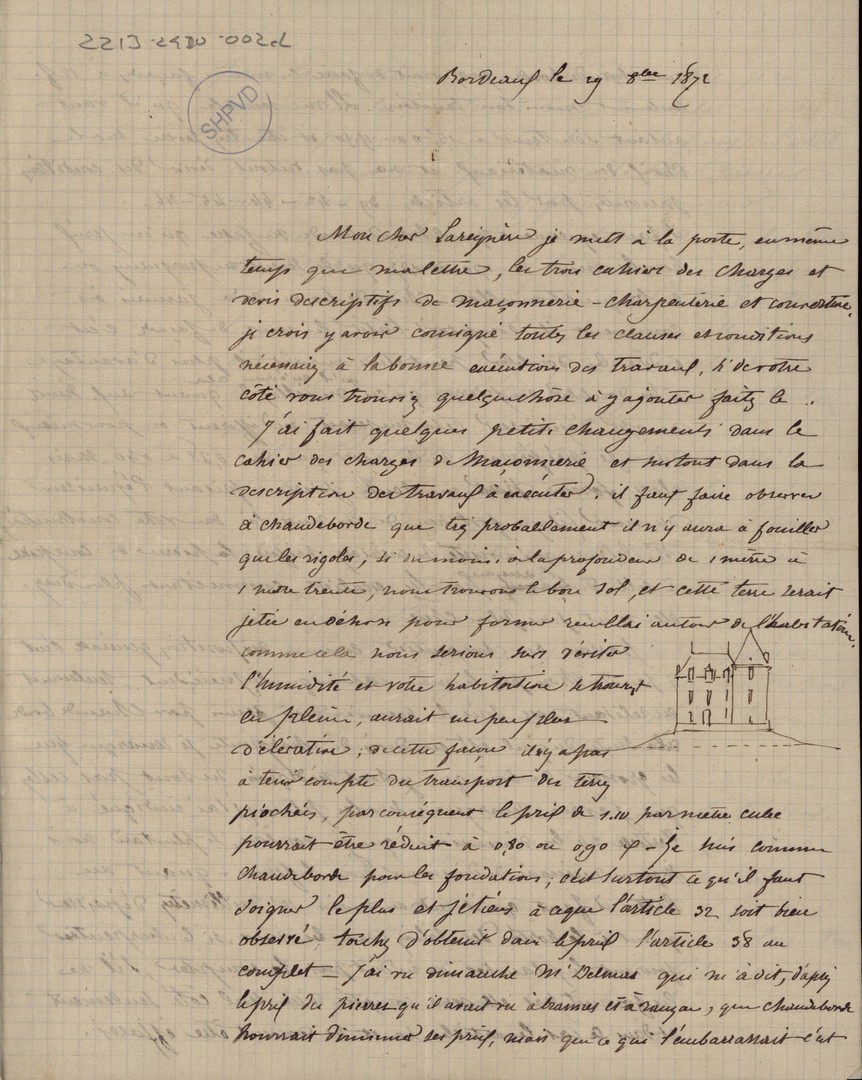 SHPVD
Bordeaux le 29 8bre 1872
Mon cher Lareynère je mets à la poste, en même
temps que ma lettre, les trois cahiers des charges et
devis descriptifs de maçonnerie - charpenterie et couverture.
je crois y avoir consigné toutes les clauses et conditions
nécessaires à la bonne exécutions des travaux, si de votre
côté vous trouviez quelque chose à y ajouter faites le.
J'ai fait quelques petits changements dans le
cahier des charges de Maçonnerie et surtout dans la
description des travaux à exécuter. il faut faire observer
à chaudeborde que très probablement il n'y aura à fouiller
que les rigoles, si du moins à la profondeur de 1 mètre à
1 mètre trente, nous trouvons le bon sol, et cette terre serait
jetée en déhors pour former remblai autour de l'habitation.
comme cela nous serions surs d'éviter
l'humidité et votre habitation se trouvant
en pleine, aurait un peu plus
d'élévation ; de cette façon il n'y a pas
à tenir compte du transport des terres
piochées, par conséquent le prix de 1.10 par mètre cube
pourrait être réduit à 0,80 ou 0,90 - Je suis comme
chaudeborde pour les fondations ; c'est surtout ce qu'il faut
soigner le plus et je tiens à ce que l'article 32 soit bien
observé. tachez d'obtenir dans le prix l'article 38 au
complet - J'ai vu dimanche Mr Delmas qui m'a dit, d'après
le prix des pierres qu'il avait vu à et à , que chaudeborde
pourrait diminuer ses prix, mais que ce qui l'embarrassait c'est